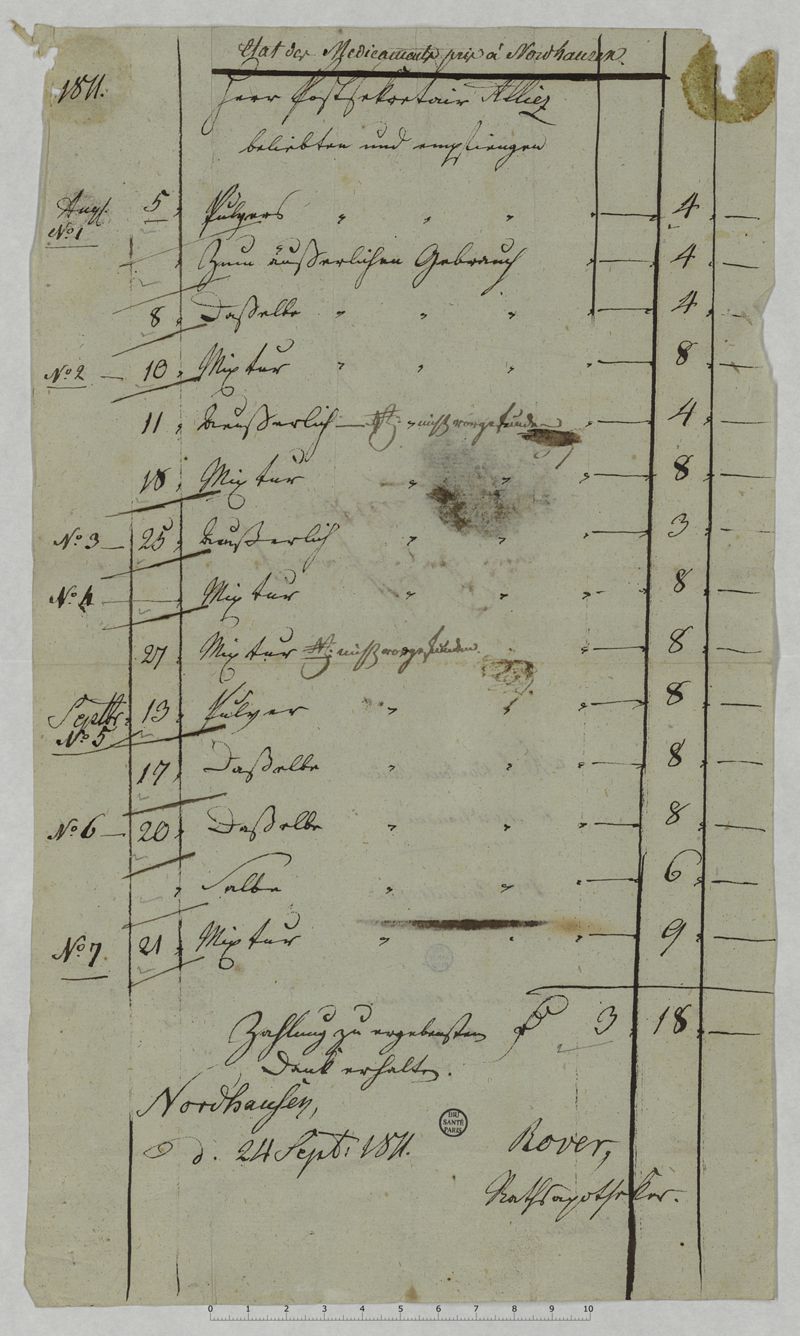 Etat des Medicaments pris à Nordhausen.
1811. Herr Postsekretair Alliez
beliebten und empfiengen
Aug. 5 Pulvers " " " — 4 —
No 1
— " Zum äußerlichen Gebrauch " — 4 —
8 " Daßelbe " " " — 4 —
No 2 — 10 " Mixtur " " " — 8 —
11 " Aeußerlich — nicht vorgefunden " — 4 —
18 " Mixtur " " " — 8 —
No 3 — 25 " Aeußerlich " " " — 3 —
No 4 — " Mixtur " " " — 8 —
27 " Mixtur nicht vorgefunden. " — 8 —
Septbr. 13 " Pulver " " " — 8 —
No 5
17 " Daßelbe " " " — 8 —
No 6 — 20 " Daßelbe " " " — 8 —
" Salbe " " " — 6 —
No 7 21 " Mixtur " " " — 9 —
Zahlung zu ergebensten 3 " 18 " —
Dank erhalten.
Nordhausen,
d. 24 Sept: 1811. Rover,
Rathsapotheker.
BIU
SANTÉ
PARIS
0 1 2 3 4 5 6 7 8 9 10